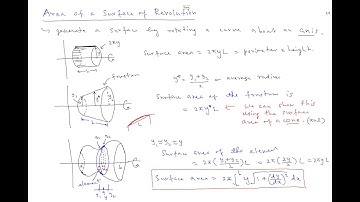 Area of a Surface of Revolution
↳ generate a surface by rotating a curve about an axis.
2πy
Surface area = 2πyL = perimeter × height.
frustum
y* = (y₁+y₂)/2 or average radius
Surface area of the frustum is
2πy*L ← We can show this
using the surface
area of a cone.
y₁ ≈ y₂ = y
Surface area of the element
= 2π((y₁+y₂)/2)L = 2π(2y/2)L = 2πyL
element
Surface area = 2π∫ₐᵇ y√(1+(dy/dx)²) dx